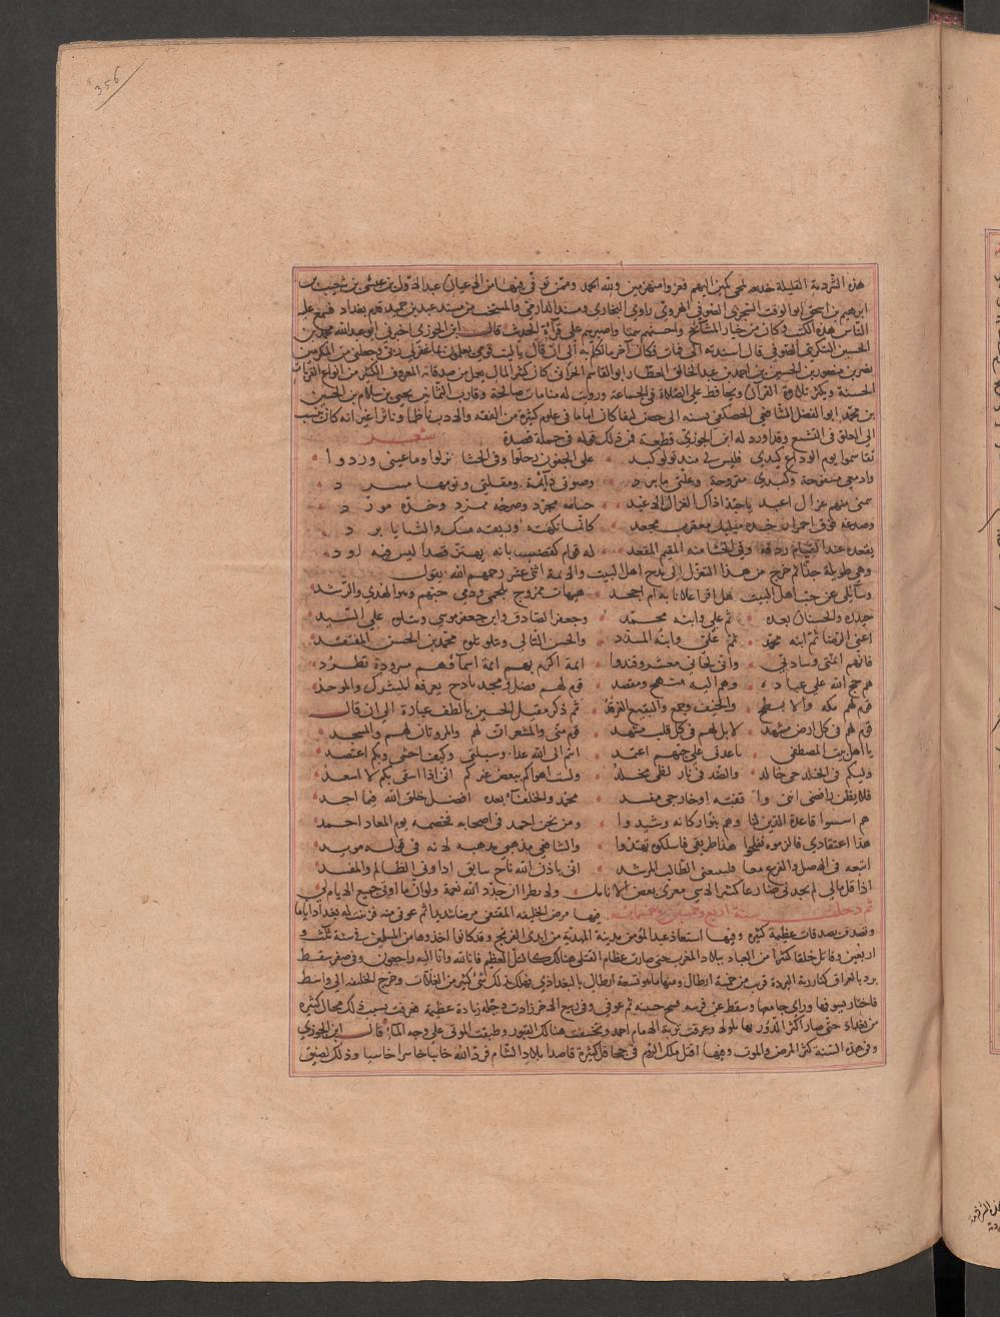 356
هذه الشرذمة القليلة خديعة لمجي كمين اليهم ففروا منهزمين ولله الحمد وممن توفي فيها من الاعيان عبد الاول بن عيسى بن شعيب بن
ابرهيم بن اسحق ابو الوقت السجزي الصوفي الهروي راوي البخاري ومسند الدارمي والمنتخب من مسند عبد بن حميد قدم بغداد فسمع عليه
الناس هذه الكتب وكان من خيار المشايخ واحسنهم سمتا واصبرهم على قراة الحديث قال ابن الجوزي اخبرني ابو عبد الله محمد بن
الحسين التكريتي الصوفي قال اسندته الى فمات فكان اخر ما تكلم به ان قال يا ليت قومي يعلمون بما غفر لي ربي وجعلني من المكرمين
نصر بن منصور بن الحسين بن احمد بن عبد الخالق العطار ابو القاسم الحراني كان كثير المال يعمل من صدقاته المعروف الكثير من انواع القربات
الحسنة ويكثر تلاوة القران ويحافظ على الصلاة في الجماعة ورويت له منامات صالحة وقارب الثمانين يحيى بن سلامة بن الحسين
بن محمد ابو الفضل الشافعي الحصكفي نسبة الى حصن كيفا كان اماما في علوم كثيرة من الفقه والادب ناظما وناثرا غير انه كان ينسب
الى الغلو في التشيع وقد اورد له ابن الجوزي قطعة من ذلك قوله في جملة قصيدة
تقاسموا يوم الوداع كبدي فليس لي منذ تولوا كبد على الجفون رحلوا وفي الحشا نزلوا وماء عيني وردوا
وادمعي مسفوحة وكبدي مقروحة وعلتي ما تبرد وصبوتي دائمة ومقلتي ونومها مشرد
تيمني منهم غزال اغيد يا حبذا ذاك الغزال الاغيد حسامه مجرد وصرحه ممرد وخده مورد
وصدغه فوق احمرار خده مبلبل معقرب مجعد كانما نكهته وريقه مسك والثنايا برد
يقعده عند القيام ردفه وفي الحشا منه المقيم المقعد له قوام كقضيب بانه يهتز قصدا ليس فيه اود
وهي طويلة جدا ثم خرج من هذا التغزل الى مدح اهل البيت والايمة الاثني عشر رحمهم الله يقول
وسايلي عن حب اهل البيت هل اقر اعلانا به ام اجحد هيهات ممزوج بلحمي ودمي حبهم وهو الهدى والرشد
حيدرة والحسنان بعده ثم علي وابنه محمد وجعفر الصادق وابن جعفر موسى ويتلوه علي السيد
اعني الرضا ثم ابنه محمد ثم علي وابنه المسدد والحسن الثاني ويتلو تلوه محمد بن الحسن المفتقد
فانهم ايمتي وسادتي وان لحاني معشر وفندوا ايمة اكرم بهم ايمة اسماوهم مسرودة تطرد
هم حجج الله على عباده وهم اليه منهج ومقصد قوم لهم فضل ومجد باذخ يعرفه المشرك والموحد
قوم لهم مكة والابطح والخيف وجمع والبقيع الغرقد ثم ذكر مقتل الحسين بالطف عبارة الى ان قال
قوم لهم في كل ارض مشهد لا بل لهم في كل قلب مشهد قوم منى والمشعران لهم والمروتان لهم والمسجد
يا اهل بيت المصطفى يا عدتي ومن على حبهم اعتمد انتم الى الله غدا وسيلتي وكيف اخشى وبكم اعتضد
وليكم في الخلد حي خالد والضد في نار لظى مخلد ولست اهواكم ببغض غيركم اني اذا اشقى بكم لا اسعد
فلا يظن رافضي انني وافقته او خارجي مفسد محمد والخلفاء بعده افضل خلق الله فيما اجد
هم اسسوا قاعدة الدين لنا وهم بنوا اركانه وشيدوا ومن يخن احمد في اصحابه فخصمه يوم المعاد احمد
هذا اعتقادي فالزموه تفلحوا هذا طريقي فاسلكوه تهتدوا والشافعي مذهبي مذهبه لانه في قوله مويد
اتبعه في الاصل والفرع معا فليتبعني الطالب المرشد اني باذن الله ناج سابق اذا ونى الظالم والمفسد
اذا قل مالي لم تجدني ضارعا كثير الاسى معرى بعض الانامل ولا بطرا ان جدد الله نعمة ولو ان ما اوتي جميع الانام لي
ثم دخلت سنة اربع وخمسين وخمسمائة فيها مرض الخليفة المقتفي مرضا شديدا ثم عوفي منه فزينت له بغداد اياما
وتصدق بصدقات عظيمة كثيرة وفيها استعاد عبد المومن مدينة المهدية من ايدي الفرنج وقد كانوا اخذوها من المسلمين في سنة ثلث و
اربعين وقاتل خلقا كثيرا من العباد ببلاد المغرب حتى صارت عظام القتلى هنالك كالتل العظيم فانا لله وانا اليه راجعون وفي صفر سقط
برد بالعراق كبار زنة البردة قريب من خمسة ارطال ومنها ما هو تسعة ارطال بالبغدادي فهلك بذلك شي كثير من الغلات وخرج الخليفة الى واسط
فاجتاز بسوقها وراى جامعها وسقط عن فرسه فشج جبينه ثم عوفي وفي ربيع الاخر زادت دجلة زيادة عظيمة فغرقت بسبب ذلك محال كثيرة
من بغداد حتى صار اكثر الدور بها تلولا وغرقت تربة الامام احمد وتخسفت هنالك القبور وطفت الموتى على وجه الماء قال ابن الجوزي
وفي هذه السنة كثر المرض والموت وفيها اقبل ملك الروم في جحافل كثيرة قاصدا بلاد الشام فرده الله خايبا خاسرا خاسيا وذلك لضيق